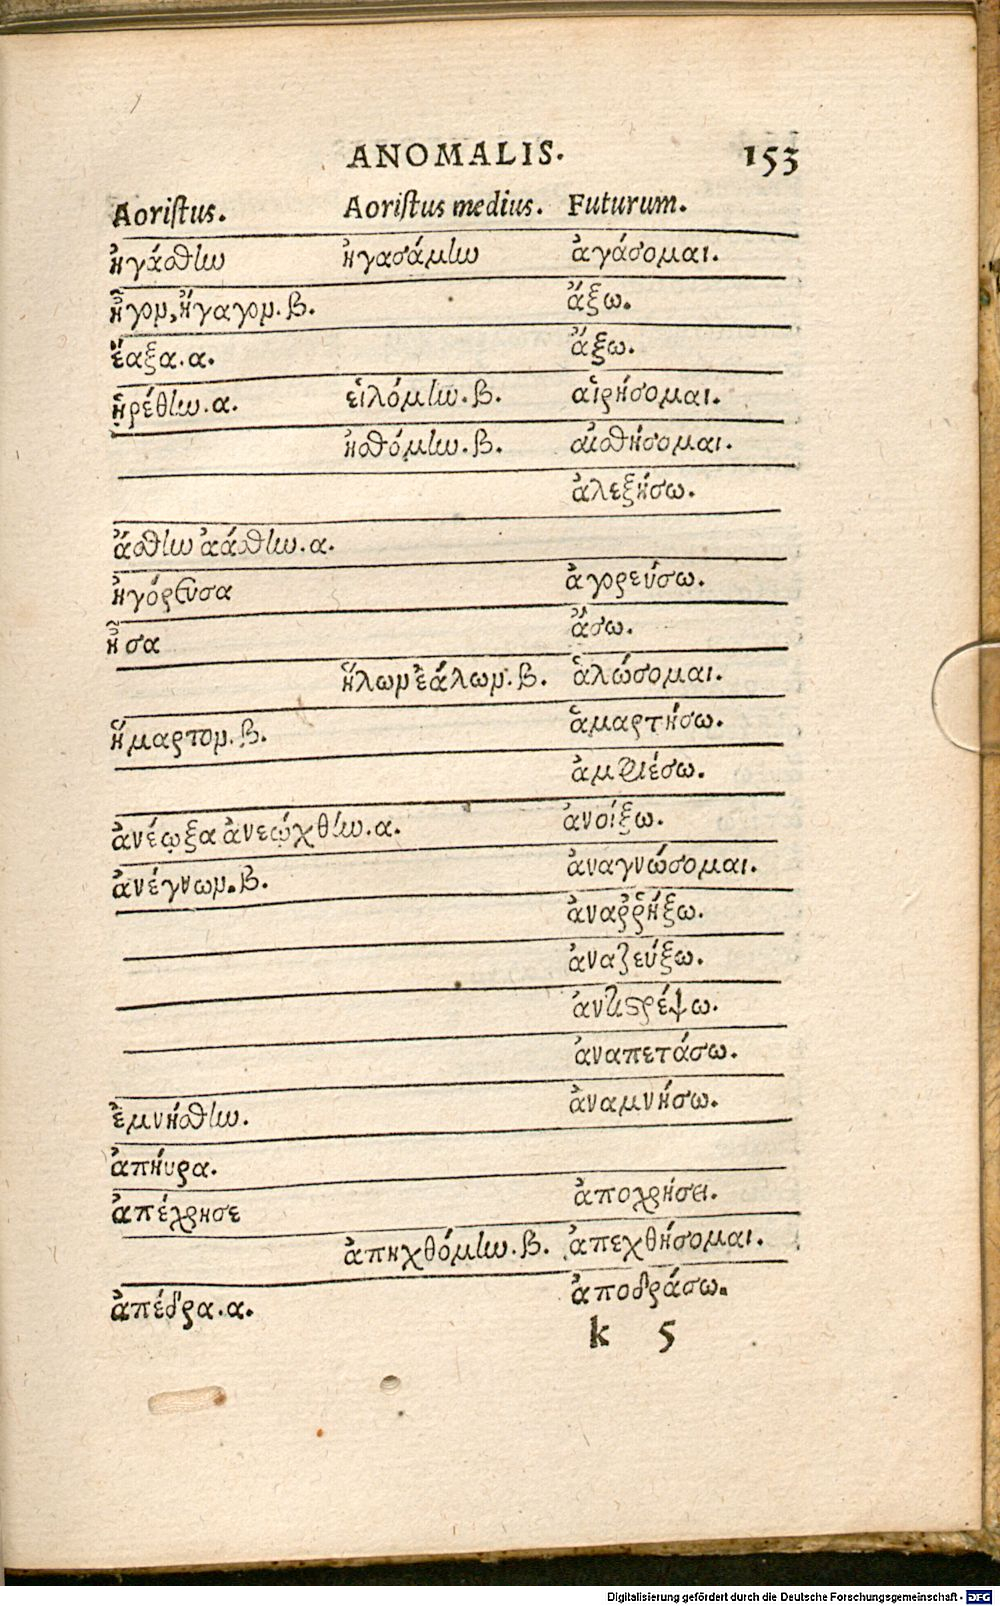 ANOMALIS. 153
Aoristus. Aoristus medius. Futurum.
ἠγάσθην ἠγασάμην ἀγάσομαι.
ἦγον, ἤγαγον. β. ἄξω.
ἔαξα. α. ἄξω.
ᾑρέθην. α. εἱλόμην. β. αἱρήσομαι.
ἠσθόμην. β. αἰσθήσομαι.
ἀλεξήσω.
ἄσθην ἀάσθην. α.
ἠγόρευσα ἀγορεύσω.
ἦσα ἄσω.
ἥλων ἐάλων. β. ἁλώσομαι.
ἥμαρτον. β. ἁμαρτήσω.
ἀμφιέσω.
ἀνέῳξα ἀνεῴχθην. α. ἀνοίξω.
ἀνέγνων. β. ἀναγνώσομαι.
ἀναῤῥήξω.
ἀναζεύξω.
ἀντιστρέψω.
ἀναπετάσω.
ἐμνήσθην. ἀναμνήσω.
ἀπηύρα.
ἀπέχρησε ἀποχρήσει.
ἀπηχθόμην. β. ἀπεχθήσομαι.
ἀπέδρα. α. ἀποδράσω.
k 5
Digitalisierung gefördert durch die Deutsche Forschungsgemeinschaft - DFG